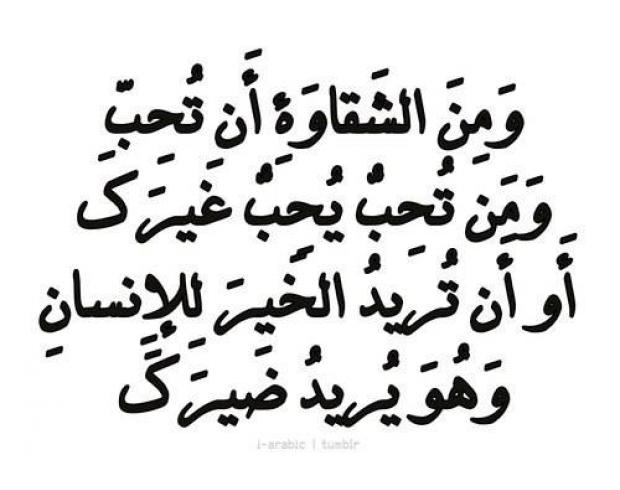 وَمِنَ الشَقاوَةِ أَن تُحِبّ
وَمَن تُحِبُّ يُحِبُّ غَيرَكَ
أَو أَن تُرِيدُ الخَيرَ لِلإِنسانِ
وَهُوَ يُرِيدُ ضَيرَكَ
i-arabic | tumblr